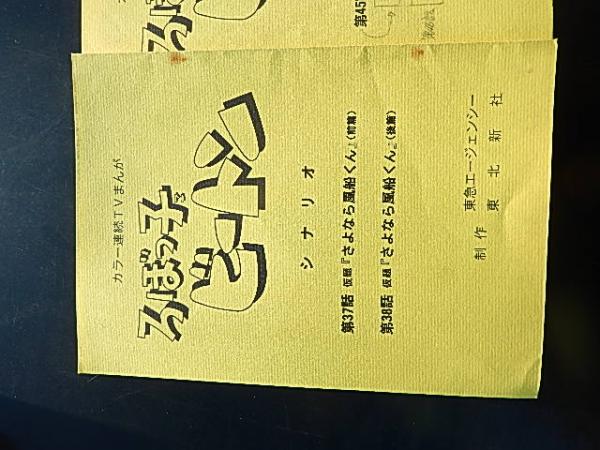 カラー連続TVまんが
ろぼっ子
ビートン
シナリオ
第37話 仮題『さよなら風船くん』(前篇)
第38話 仮題『さよなら風船くん』(後篇)
東急エージェンシー
制作 東北新社
ろぼっ子
第45